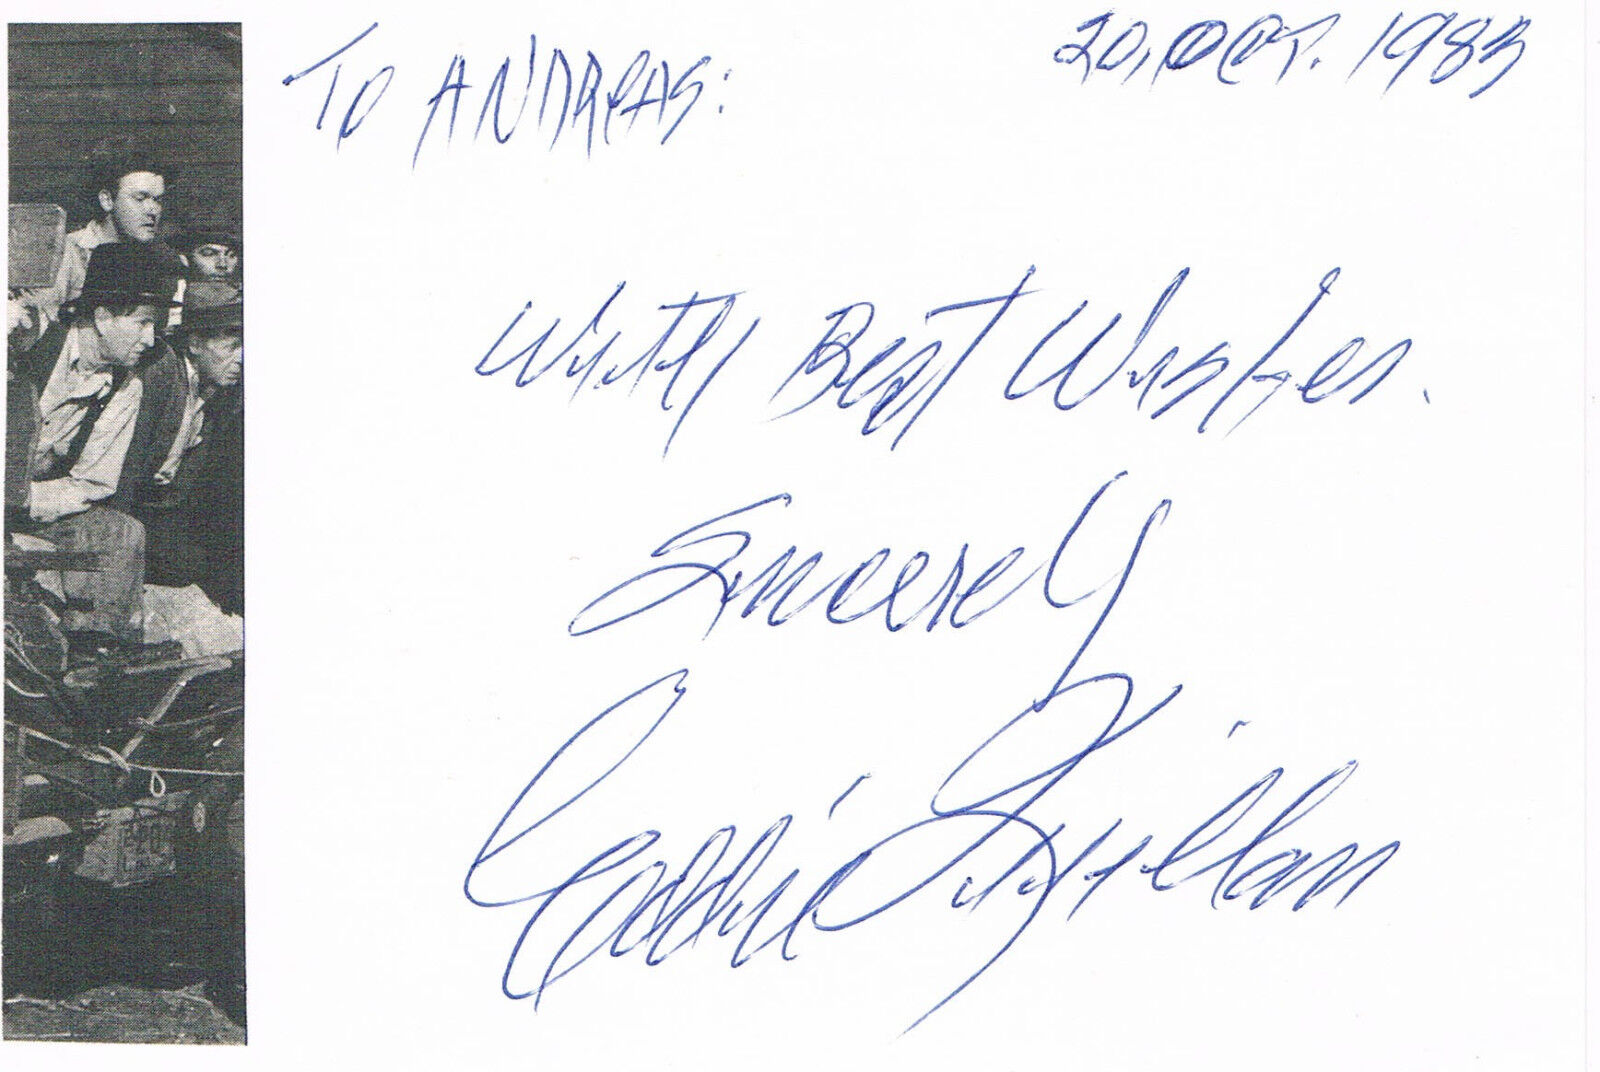 TO ANDREAS: 20, OCT. 1983
With Best Wishes.
Sincerely
Eddie Quillan